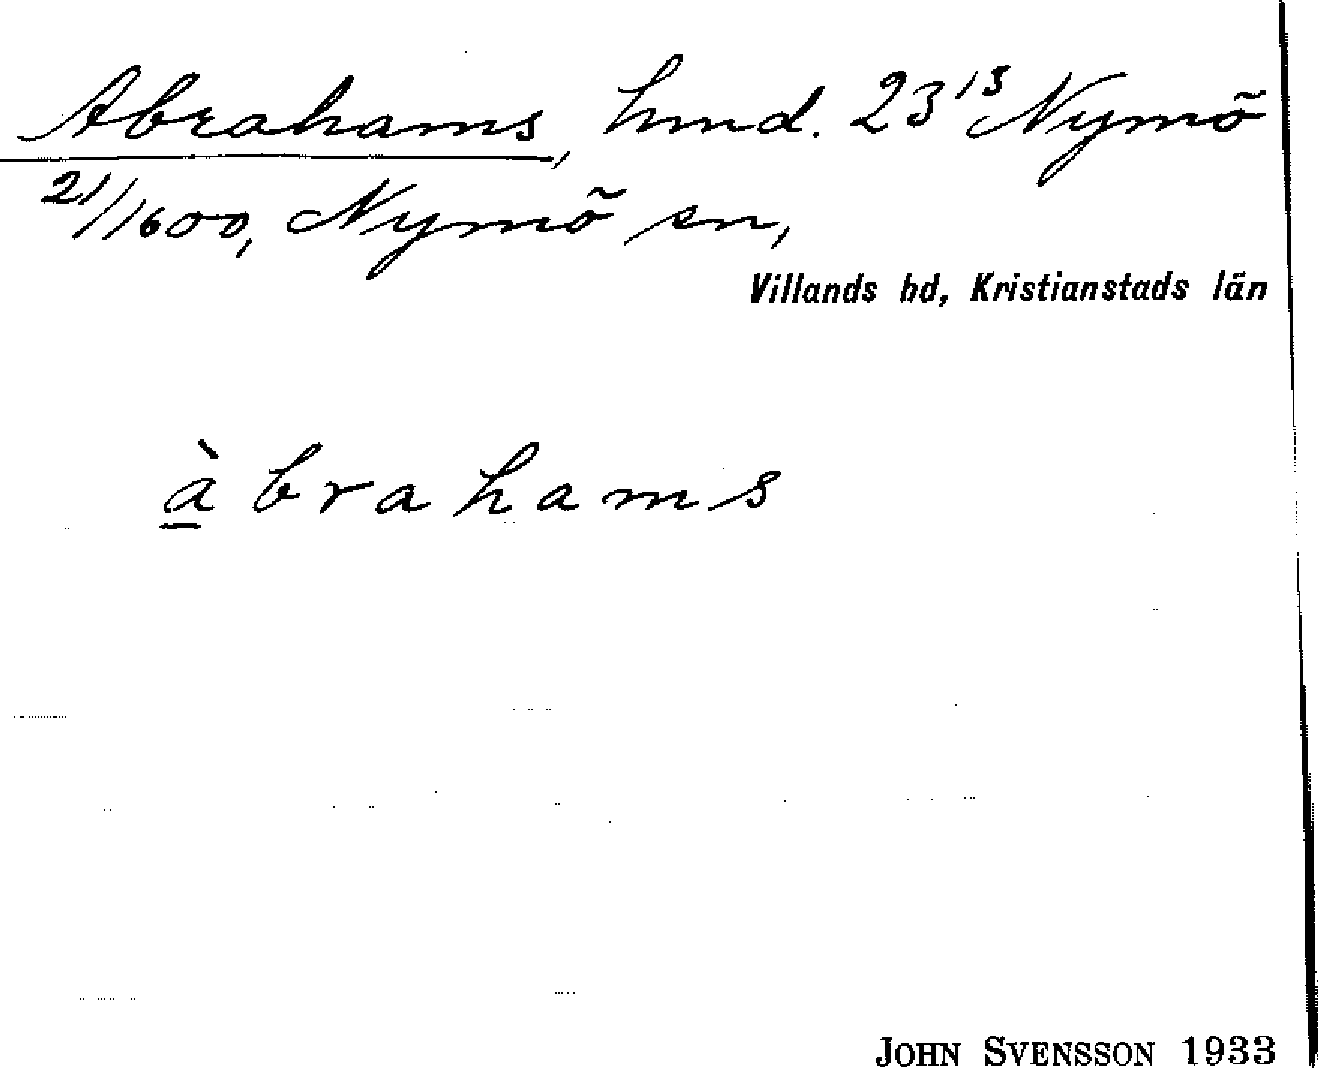 Abrahams, hmd. 23¹³ Nymö
21/1600, Nymö sn,
Villands hd, Kristianstads län
à̱brahams
JOHN SVENSSON 1933